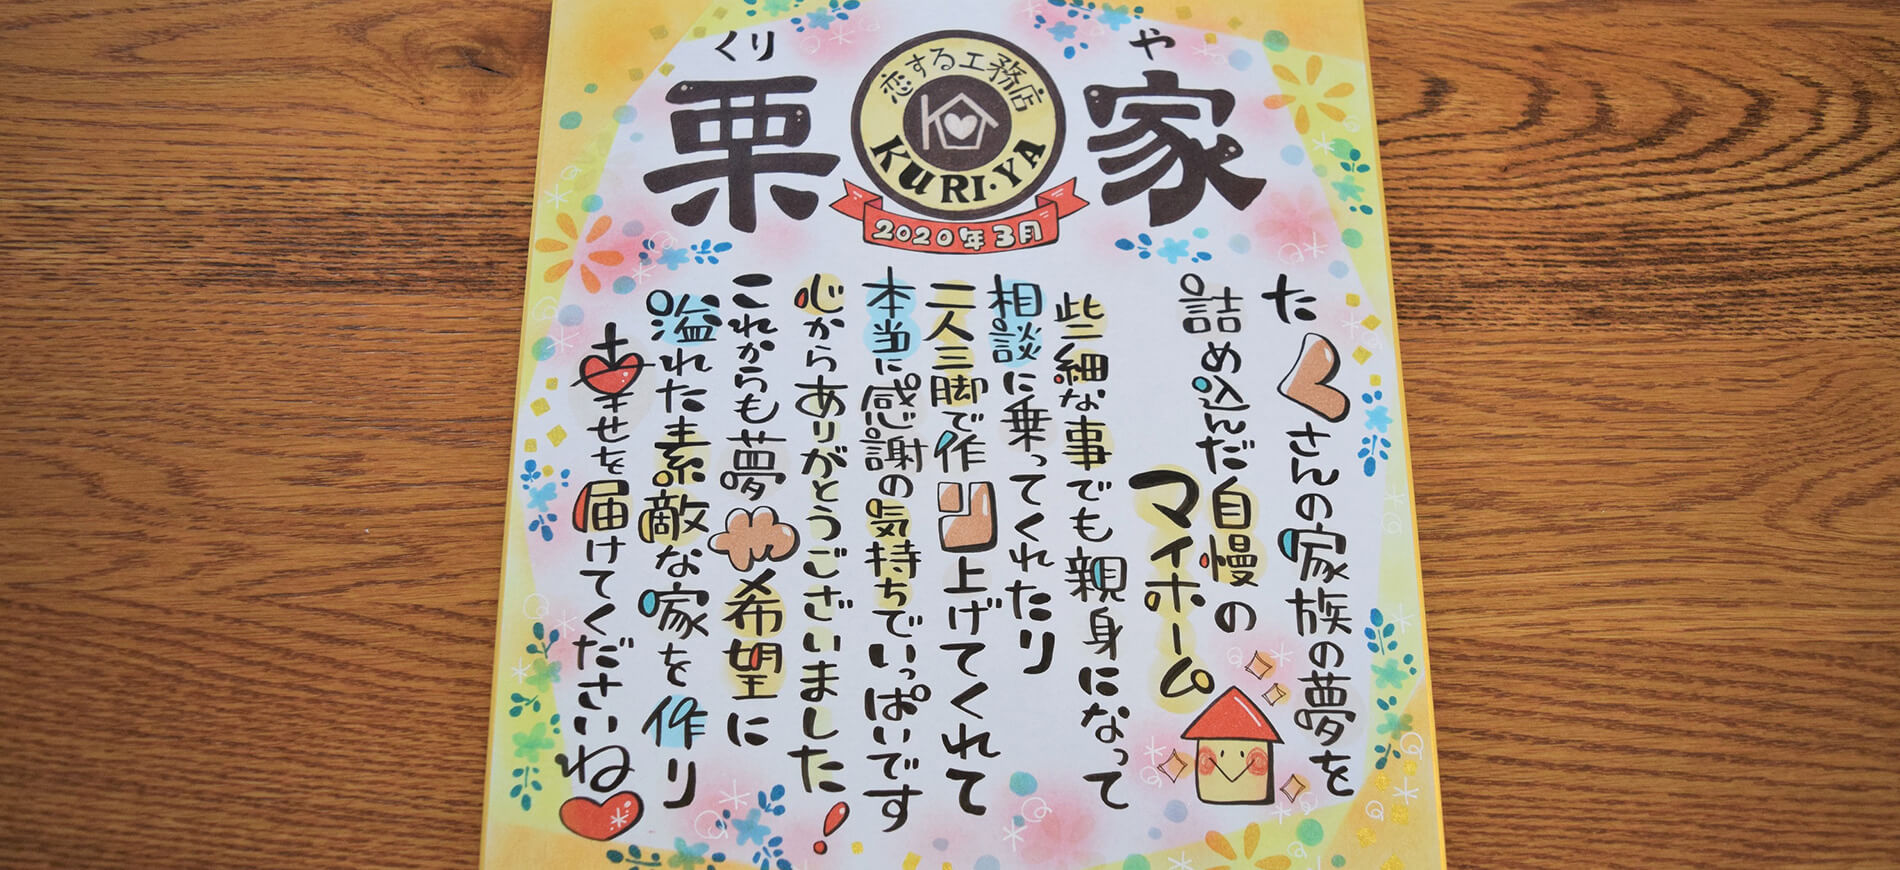 くり や
栗 家
恋する工務店
KURI・YA
2020年3月
たくさんの家族の夢を
詰め込んだ自慢の
マイホーム
些細な事でも親身になって
相談に乗ってくれたり
二人三脚で作り上げてくれて
本当に感謝の気持ちでいっぱいです
心からありがとうございました!
これからも夢や希望に
溢れた素敵な家を作り
幸せを届けてくださいね